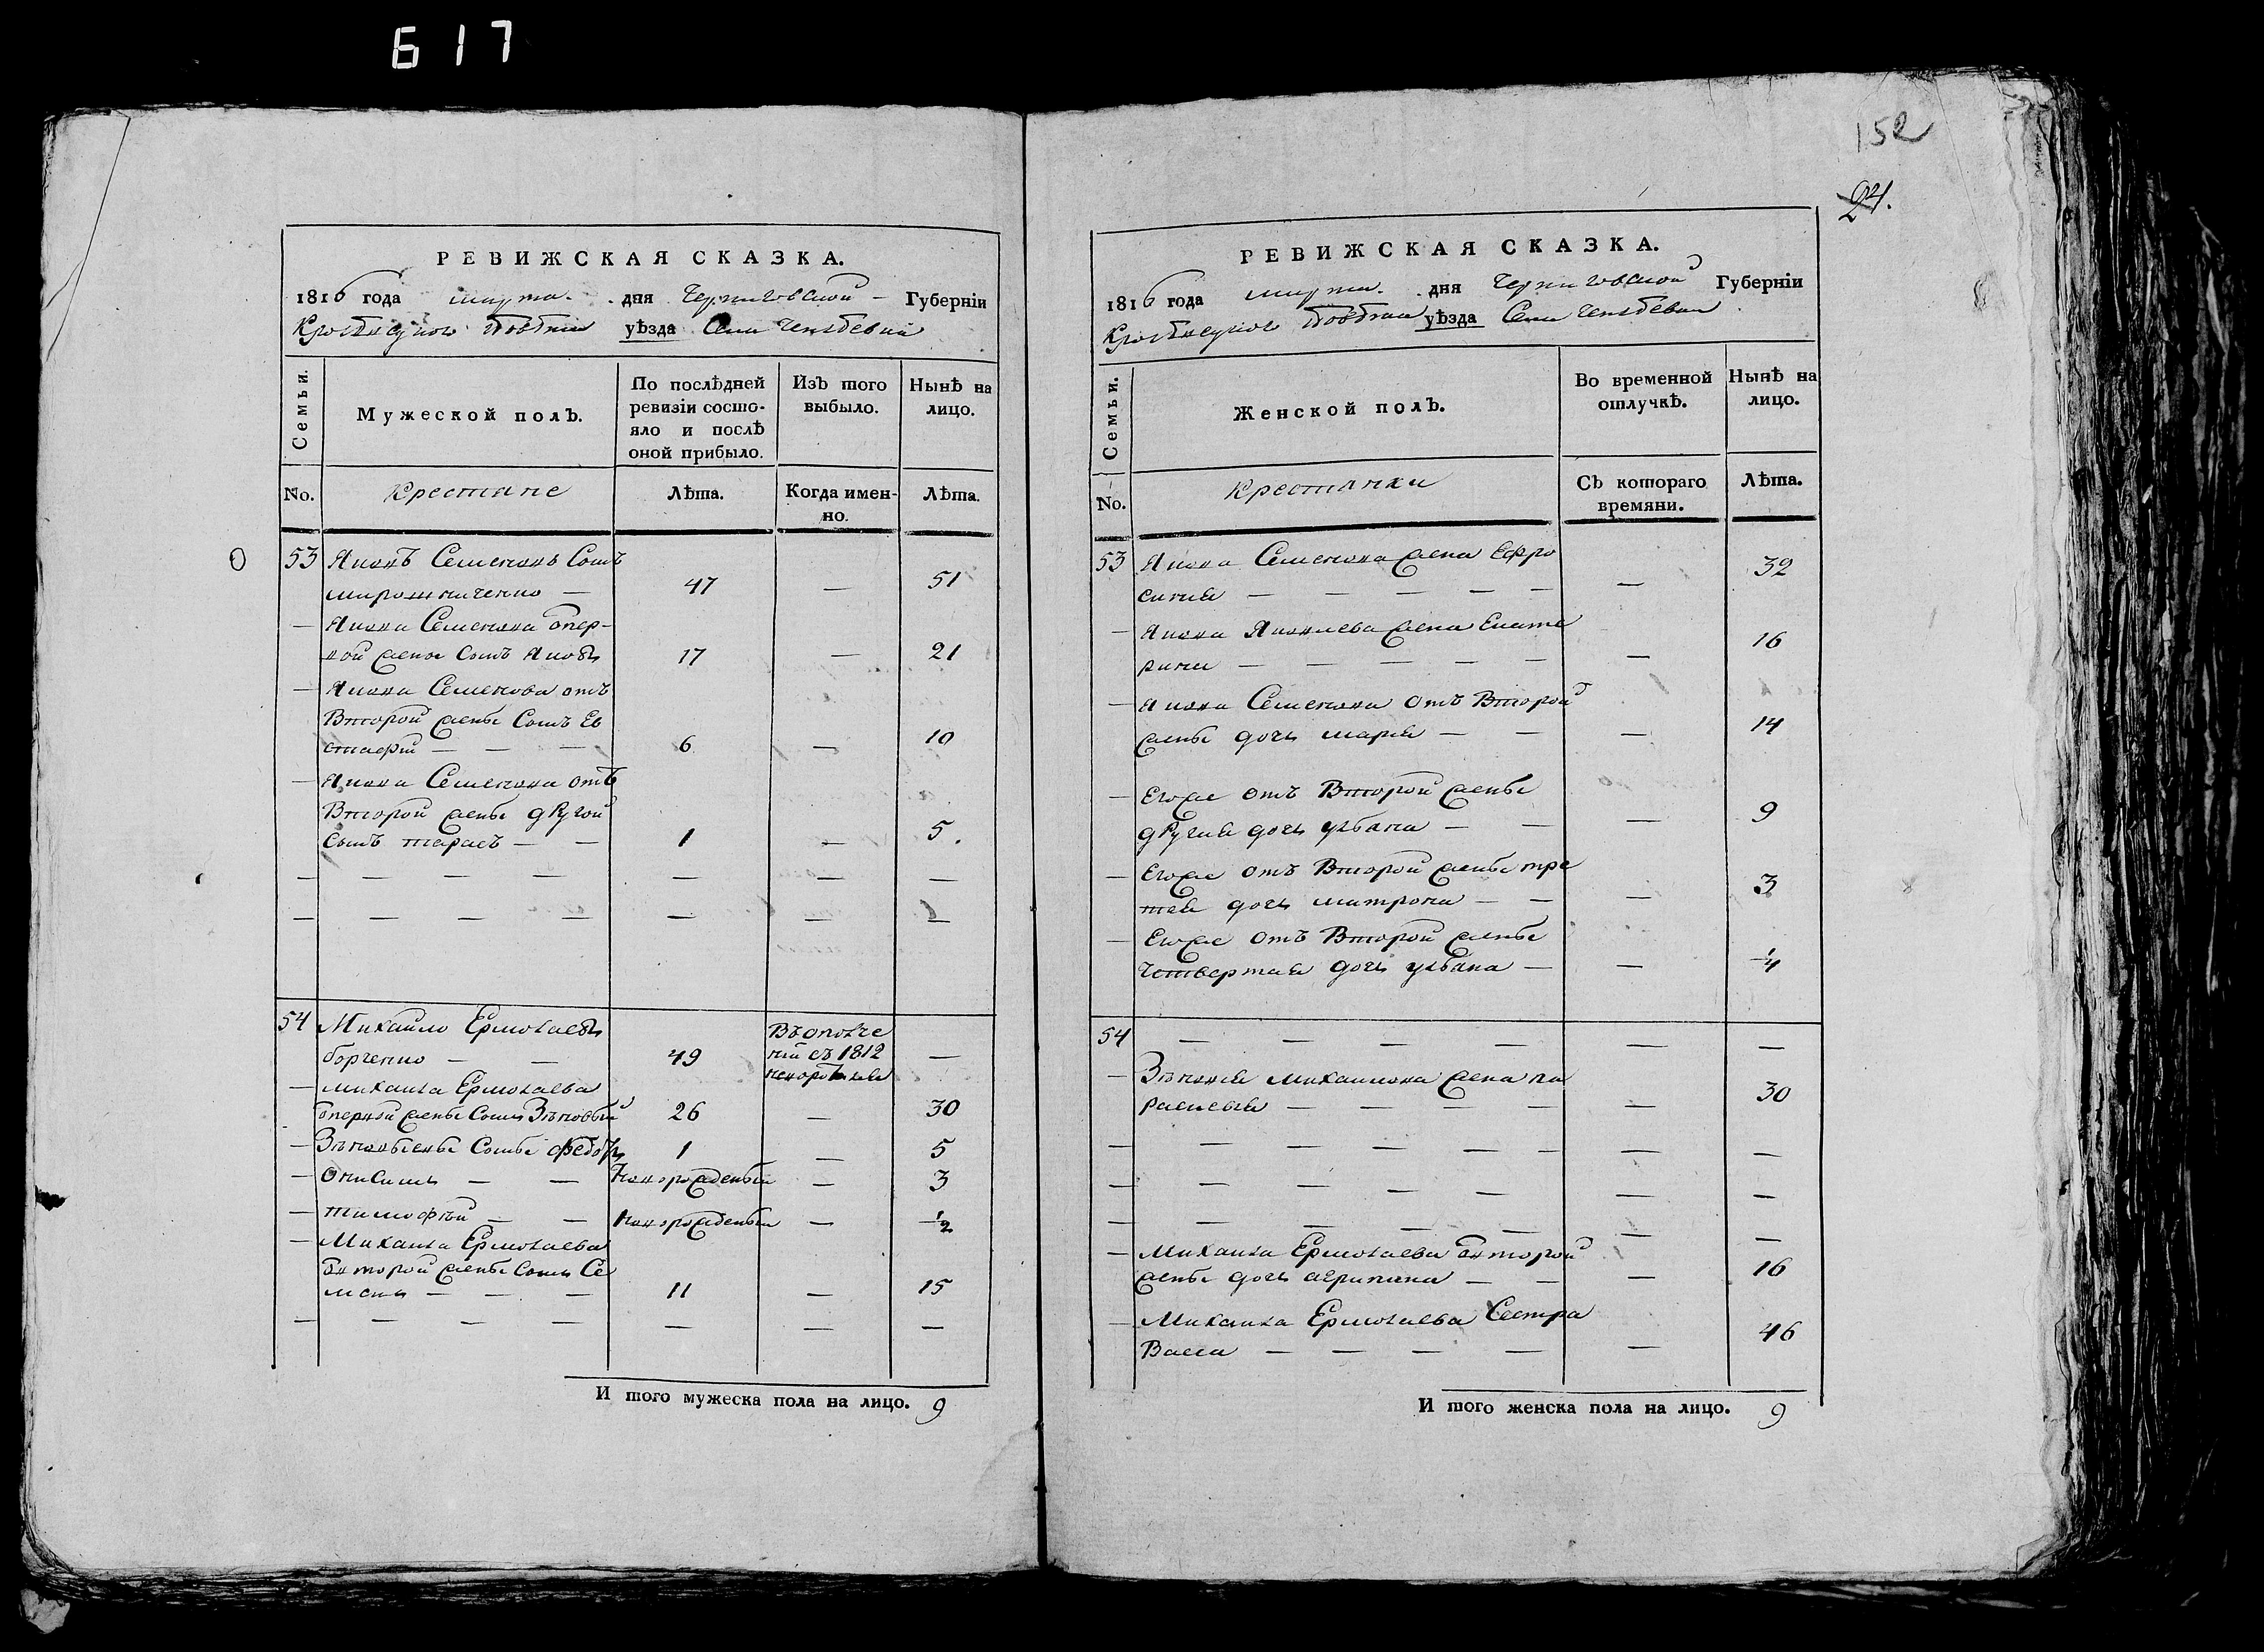 617
152
24.
РЕВИЖСКАЯ СКАЗКА.
1816 года марта дня Черниговской Губерніи
уѣзда Села
Семьи.
Мужеской полъ.
По послѣдней ревизіи состояло и послѣ оной прибыло.
Изъ того выбыло.
Нынѣ на лицо.
No.
Крестяне
Лѣта.
Когда именно.
Лѣта.
53 Яковъ Семеновъ Сынъ
мирошниченко — 47 — 51
— Якова Семенова опер-
вой жены Сынъ Яковъ 17 — 21
— Якова Семенова отъ
Второй жены Сынъ Ев
стафій — — — 6 — 10
— Якова Семенова отъ
Второй жены другой
Сынъ тарасъ — — 1 — 5.
— — — — — — —
— — — — — — —
54 Михайло Ермолаевъ
борченко — — 49 Въ ополче
ніи съ 1812 —
— михаила Ермолаева
опервой жены Сынъ Зѣновый 26 — 30
— Сынъ федоръ 1 — 5
— Онисимъ — — Новорожденый — 3
— тимофѣй — — Новорожденый — ½
— Михаила Ермолаева
второй жены Сынъ Се
менъ — — — 11 — 15
— — — — — — —
И того мужеска пола на лицо. 9
РЕВИЖСКАЯ СКАЗКА.
1816 года марта. дня Черниговской Губерніи
уѣзда Села
Семьи.
Женской полъ.
Во временной отлучкѣ.
Нынѣ на лицо.
No.
Крестянки
Съ котораго времяни.
Лѣта.
53 Якова Семенова жена Ефро
синія — — — — — — 32
— Якова Яковлева жена Екате
рина — — — — — — 16
— Якова Семенова отъ Второй
жены дочь марія — — — 14
— Егоже отъ Второй жены
другая дочь уляна — — — 9
— Егоже отъ Второй жены тре
тая дочь матрона — — — 3
— Егоже отъ Второй жены
четвертая дочь уляна — — ¼
54 — — — — — —
— Зѣновія михайлова жена па
раскевія — — — — — 30
— — — — — — —
— — — — — — —
— — — — — — —
— Михаила Ермолаева второй
жены дочь агрипина — — — 16
— Михаила Ермолаева Сестра
Васса — — — — — 46
И того женска пола на лицо. 9